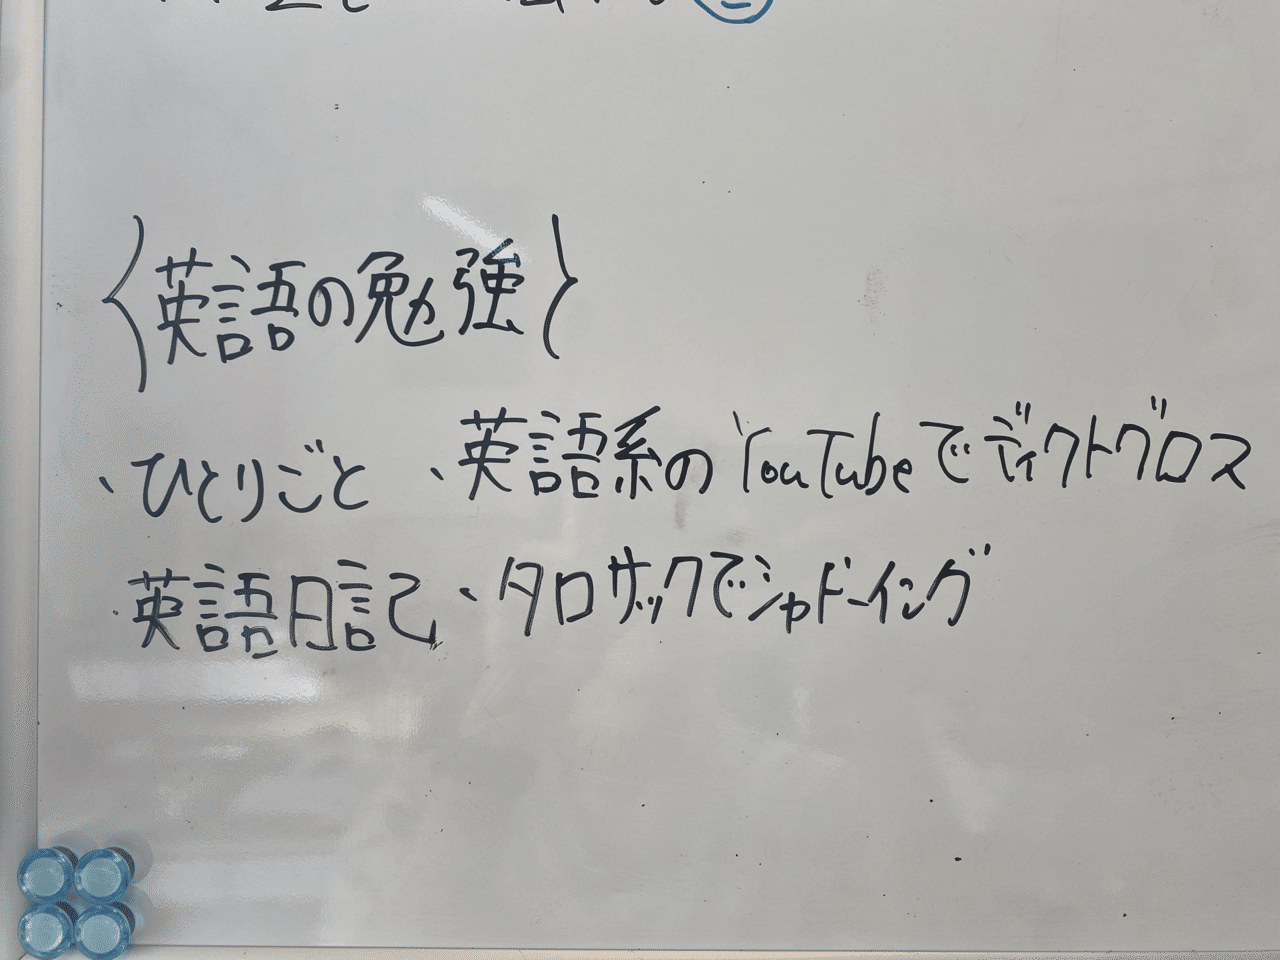 {英語の勉強}
・ひとりごと ・英語系のYouTubeでディクトグロス
・英語日記 ・タロサックでシャドーイング